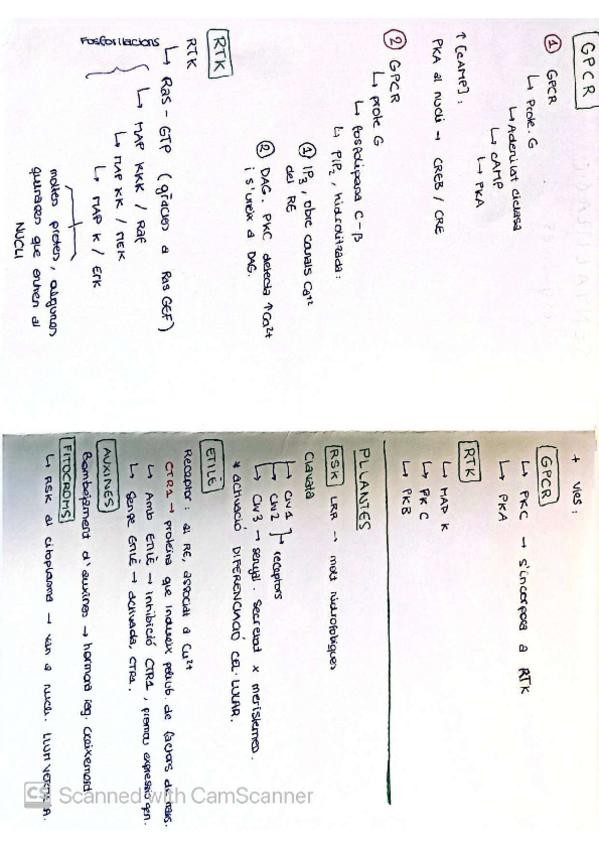 GPCR
① GPCR
↳ Prote. G
↳ Adenilat ciclasa
↳ cAMP
↳ PKA
↑ [cAMP] :
PKA al nucli → CREB / CRE
② GPCR
↳ prote G
↳ Fosfolipasa C-β
↳ PIP₂, hidrolitzada:
① IP₃, obre canals Ca²⁺
del RE
② DAG. PKC detecta ↑Ca²⁺
i s'uneix a DAG.
RTK
RTK
↳ Ras - GTP (gràcies a Ras GEF)
Fosforilacions
↳ MAP KKK / Raf
↳ MAP KK / MEK
↳ MAP K / ERK
moltes protes, algunes
quinases que entren al
NUCLI
+ vies:
GPCR
↳ PKC → s'incorpora a RTK
↳ PKA
RTK
↳ MAP K
↳ PKC
↳ PKB
PLANTES
RSK LRR → mot hidrofòbiques
Clavata
↳ CLV 1
↳ CLV 2 → receptors
↳ CLV 3 → senyal. secretat x meristemes.
* activació DIFERENCIACIÓ CEL·LULAR.
ETILÈ
Receptor: al RE, associat a Cu²⁺
CTR1 → proteïna que indueix poliub. de factors de
↳ Amb ETILÈ → inhibició CTR1, promou expressió gen.
↳ Sense ETILÈ → activada, CTR1.
AUXINES
Bombejament d'auxines → hormona reg. creixement
FITOCROMS
↳ RSK al citoplasma → van a nucli. LLUM
CS Scanned with CamScanner